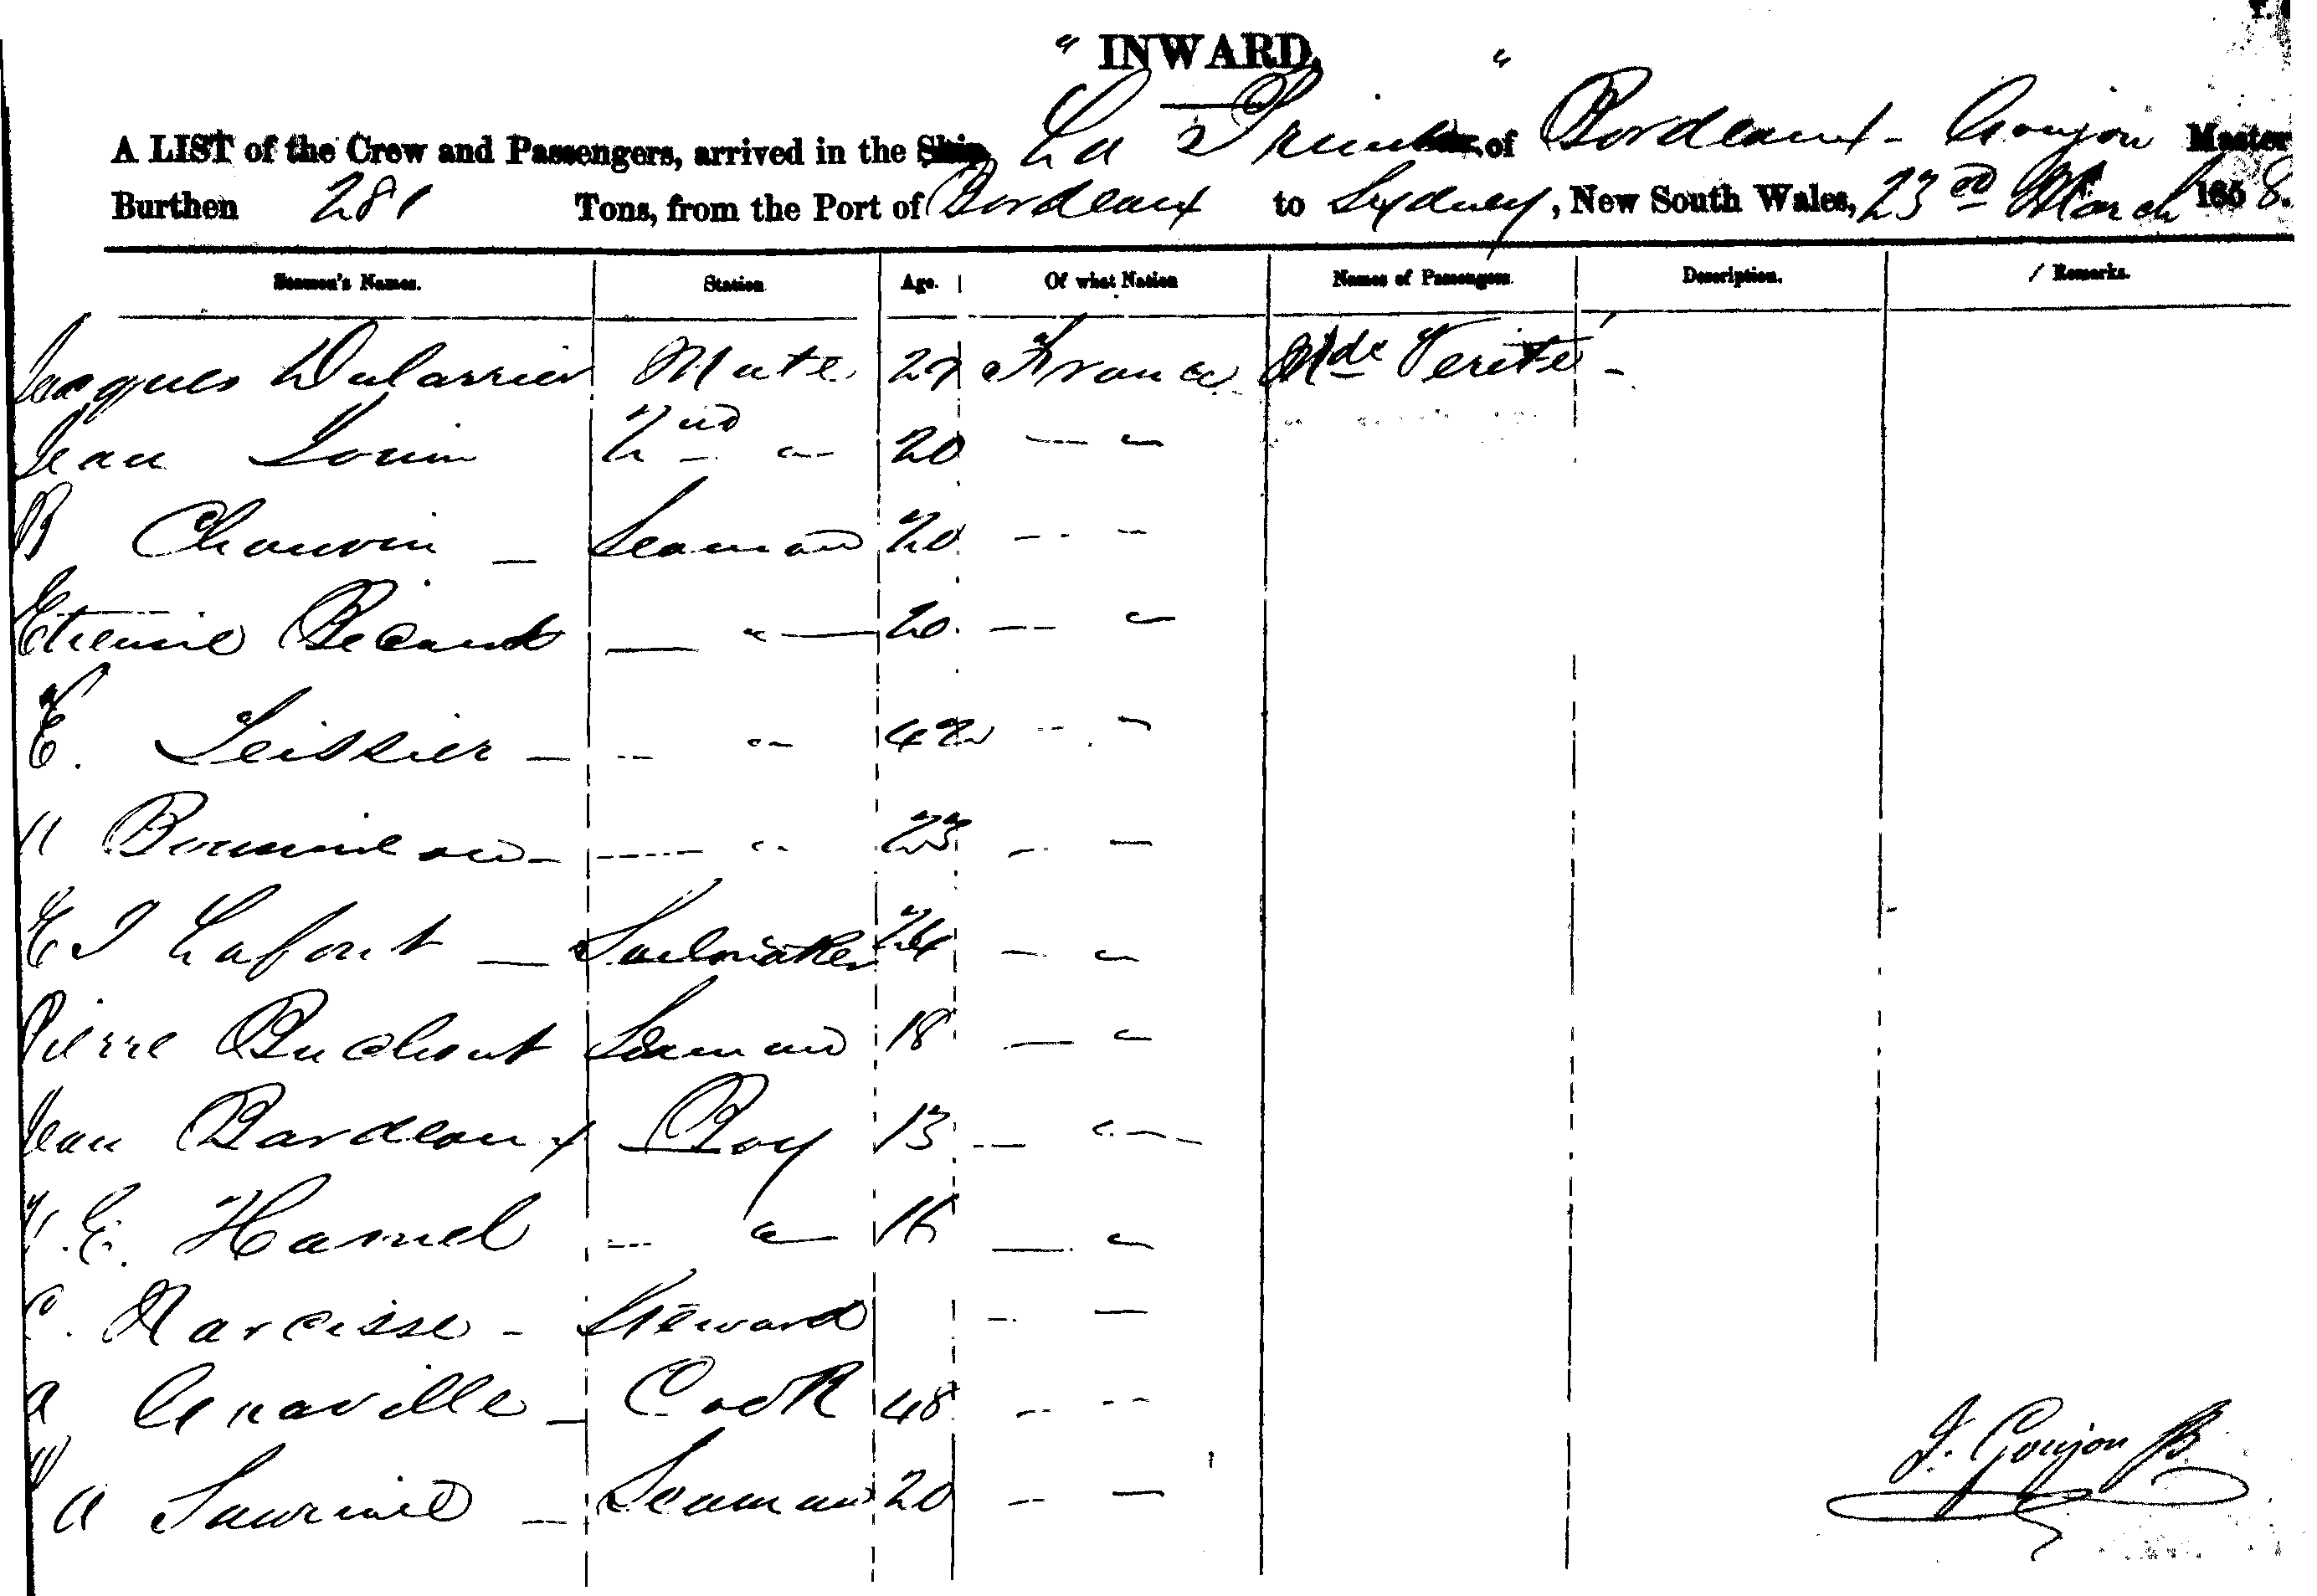 " INWARD. "
A LIST of the Crew and Passengers, arrived in the Ship La of Bordeaux - Goujon Master
Burthen 281 Tons, from the Port of Bordeaux to Sydney, New South Wales, 23rd March 1858.
Seamen's Names. Station Age. Of what Nation Names of Passengers. Description. Remarks.
Jacques Mate 27 France Mde Verité -
Jean 2nd " 20 — "
B Chauvin — Seaman 20 — "
Etienne — " — 20 — "
E. Teissier — — " 42 — "
— " 23 — "
E J Lafont — Sailmaker 24 — "
Pierre Seaman 18 — "
Jean Bardeaux Boy 13 — "
E. Hamel — " 16 — "
C. Narcisse - Steward — "
A — Cook 48 — "
A — Seaman 20 — "
J. Goujon